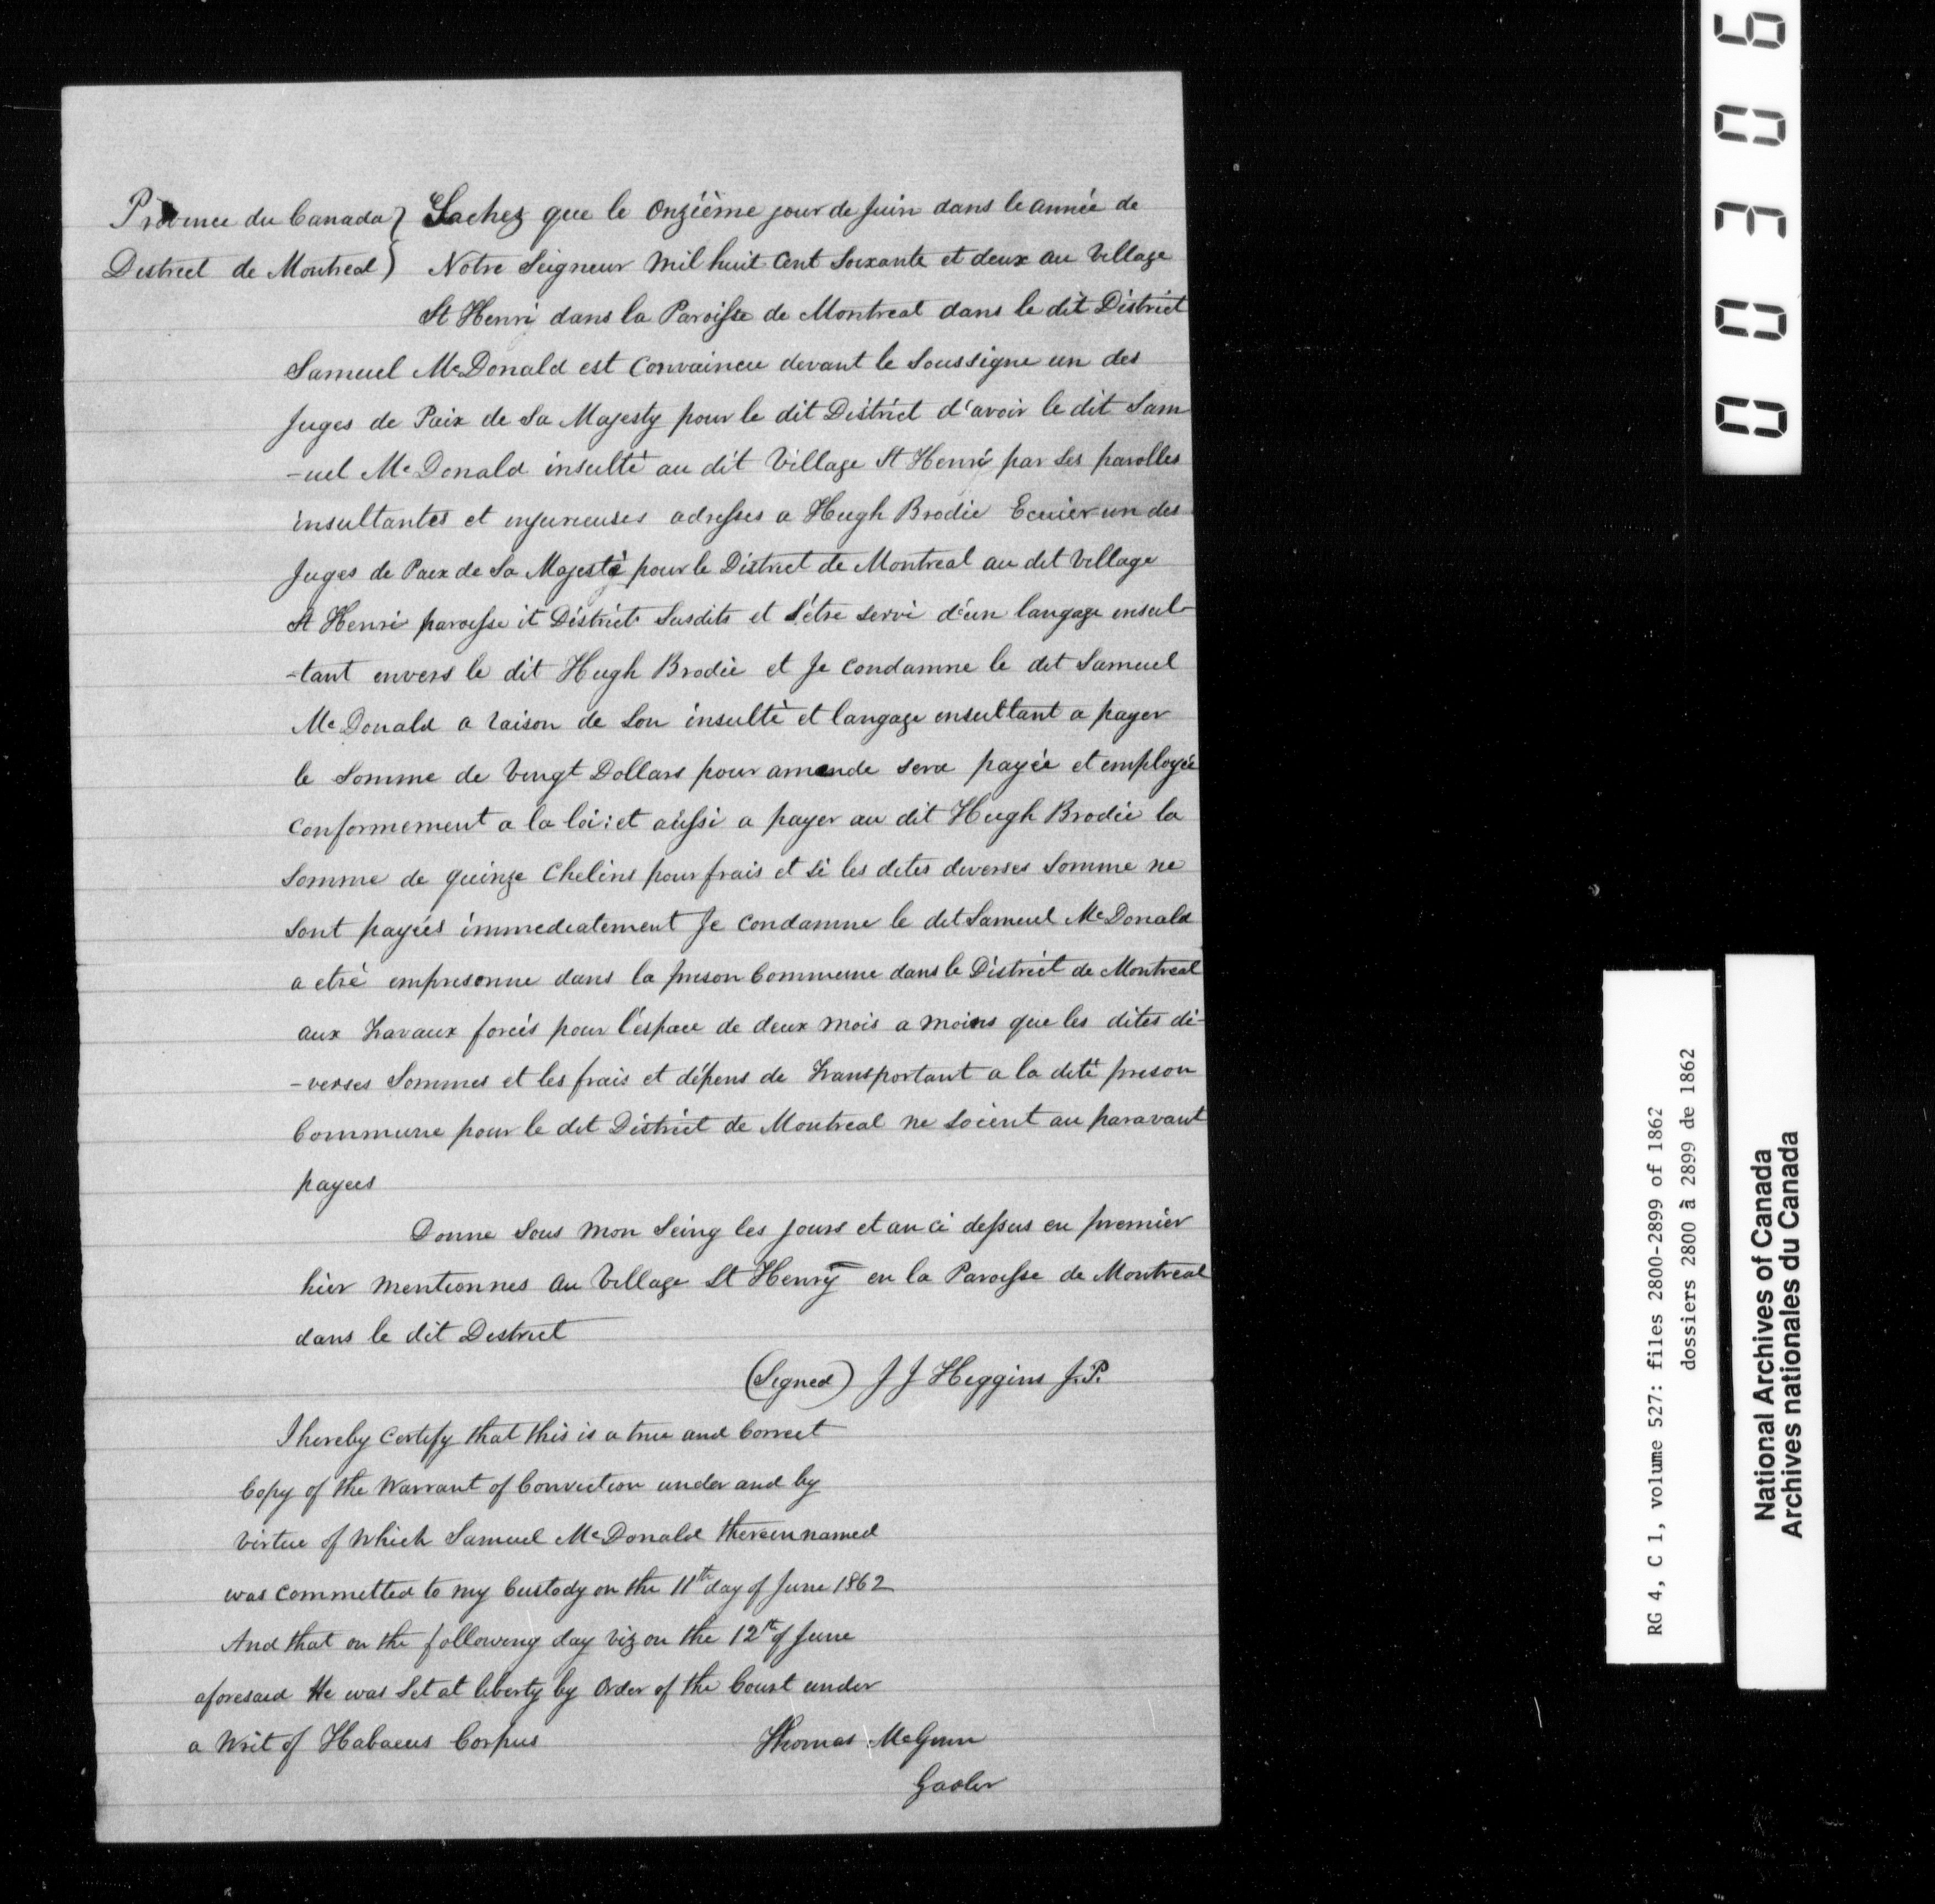 Province du Canada } Sachez que le Onzième jour de Juin dans le année de
District de Montreal } Notre Seigneur Mil huit Cent Soixante et deux au Village
St Henri dans la Paroisse de Montreal dans le dit District
Samuel McDonald est Convaincu devant le Soussigne un des
Juges de Paix de Sa Majesty pour le dit District d'avoir le dit Sam
-uel McDonald insulté au dit Village St Henri par Ses parolles
insultantes et injurieuses adresses a Hugh Brodie Ecuier un des
Juges de Paix de Sa Majesté pour le District de Montreal au dit Village
St Henri paroisse et District Susdits et S'être Servi d'un langage insul-
-tant envers le dit Hugh Brodie et Je Condamne le dit Samuel
McDonald a raison de Son insulté et langage insultant a payer
le Somme de Vingt Dollars pour amende sera payée et employée
Conformement a la loi: et aussi a payer au dit Hugh Brodie la
Somme de quinze Chelins pour frais et Si les dites diverses Somme ne
Sont payées immediatement Je Condamne le dit Samuel McDonald
a etré emprisonne dans la prison Commune dans le District de Montreal
aux travaux forcés pour l'espace de deux Mois a Moins que les dites di-
-verses Sommes et les frais et dépens de transportant a la dité prison
Commune pour le dit District de Montreal ne Soient au paravant
payees
Donne Sous Mon Seing les Jours et an ci dessus en premier
hier Mentionnes au Village St Henry en la Paroisse de Montreal
dans le dit District
(Signed) J J Higgins J.P.
I hereby Certify that this is a true and Correct
Copy of the Warrant of Conviction under and by
Virtue of Which Samuel McDonald therein named
was Committed to my Custody on the 11th day of June 1862
And that on the following day Viz on the 12th of June
aforesaid He was Set at liberty by Order of the Court under
a Writ of Habaeus Corpus Thomas McGinn
Gaoler
000306
RG 4, C 1, volume 527: files 2800-2899 of 1862
dossiers 2800 à 2899 de 1862
National Archives of Canada
Archives nationales du Canada